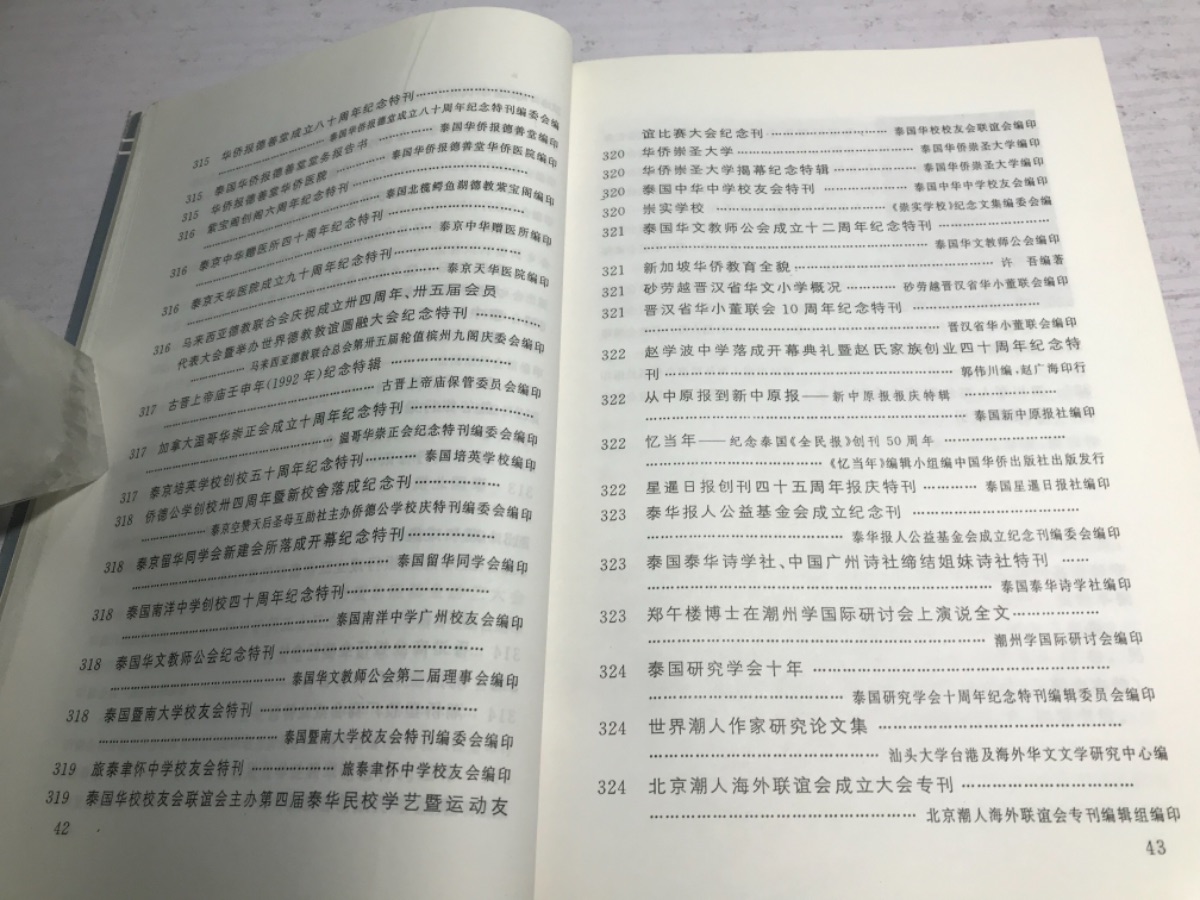 315 华侨报德善堂成立八十周年纪念特刊……………………
……………………泰国华侨报德堂成立八十周年纪念特刊编委会编
315 泰国华侨报德善堂堂务报告书 ………… 泰国华侨报德善堂编印
315 华侨报德善堂华侨医院 ………… 泰国华侨报德善堂华侨医院编印
316 紫宝阁创阁六周年纪念特刊……………………
……………………泰国北榄鳄鱼湖德教紫宝阁编印
316 泰京中华赠医所四十周年纪念特刊……………………
……………………泰京中华赠医所编印
316 泰京天华医院成立九十周年纪念特刊……………………
……………………泰京天华医院编印
316 马来西亚德教联合会庆祝成立卅四周年、卅五届会员
代表大会暨举办世界德教敦谊圆融大会纪念特刊 …………
…………马来西亚德教联合总会第卅五届轮值槟州九阁庆委会编印
317 古晋上帝庙壬申年(1992年)纪念特辑 ……………………
……………………古晋上帝庙保管委员会编印
317 加拿大温哥华崇正会成立十周年纪念特刊 ……………………
……………………温哥华崇正会纪念特刊编委会编印
317 泰京培英学校创校五十周年纪念特刊…………泰国培英学校编印
318 侨德公学创校卅四周年暨新校舍落成纪念刊……………………
…………泰京空赞天后圣母互助社主办侨德公学校庆特刊编委会编印
318 泰京留华同学会新建会所落成开幕纪念特刊……………………
……………………泰国留华同学会编印
318 泰国南洋中学创校四十周年纪念特刊……………………
……………………泰国南洋中学广州校友会编印
318 泰国华文教师公会纪念特刊……………………
……………………泰国华文教师公会第二届理事会编印
318 泰国暨南大学校友会特刊……………………
……………………泰国暨南大学校友会特刊编委会编印
319 旅泰聿怀中学校友会特刊 ………… 旅泰聿怀中学校友会编印
319 泰国华校校友会联谊会主办第四届泰华民校学艺暨运动友
42
谊比赛大会纪念刊 ……………………泰国华校校友会联谊会编印
320 华侨崇圣大学……………………泰国华侨崇圣大学编印
320 华侨崇圣大学揭幕纪念特辑 …………泰国华侨崇圣大学编印
320 泰国中华中学校友会特刊 …………泰国中华中学校友会编印
320 崇实学校 ……………………《崇实学校》纪念文集编委会编
321 泰国华文教师公会成立十二周年纪念特刊 …………
……………………泰国华文教师公会编印
321 新加坡华侨教育全貌……………………许 吾编著
321 砂劳越晋汉省华文小学概况 …………砂劳越晋汉省华小董联会编印
321 晋汉省华小董联会10周年纪念特刊 ……………………
……………………晋汉省华小董联会编印
322 赵学波中学落成开幕典礼暨赵氏家族创业四十周年纪念特
刊……………………郭伟川编,赵广海印行
322 从中原报到新中原报——新中原报报庆特辑 …………
……………………泰国新中原报社编印
322 忆当年——纪念泰国《全民报》创刊50周年 ……………………
……………………《忆当年》编辑小组编中国华侨出版社出版发行
322 星暹日报创刊四十五周年报庆特刊…………泰国星暹日报社编印
323 泰华报人公益基金会成立纪念刊 ……………………
……………………泰华报人公益基金会成立纪念刊编委会编印
323 泰国泰华诗学社、中国广州诗社缔结姐妹诗社特刊 ……
……………………泰国泰华诗学社编印
323 郑午楼博士在潮州学国际研讨会上演说全文…………
……………………潮州学国际研讨会编印
324 泰国研究学会十年 ……………………
……………………泰国研究学会十周年纪念特刊编辑委员会编印
324 世界潮人作家研究论文集 ……………………
……………………汕头大学台港及海外华文文学研究中心编
324 北京潮人海外联谊会成立大会专刊……………………
……………………北京潮人海外联谊会专刊编辑组编印
43